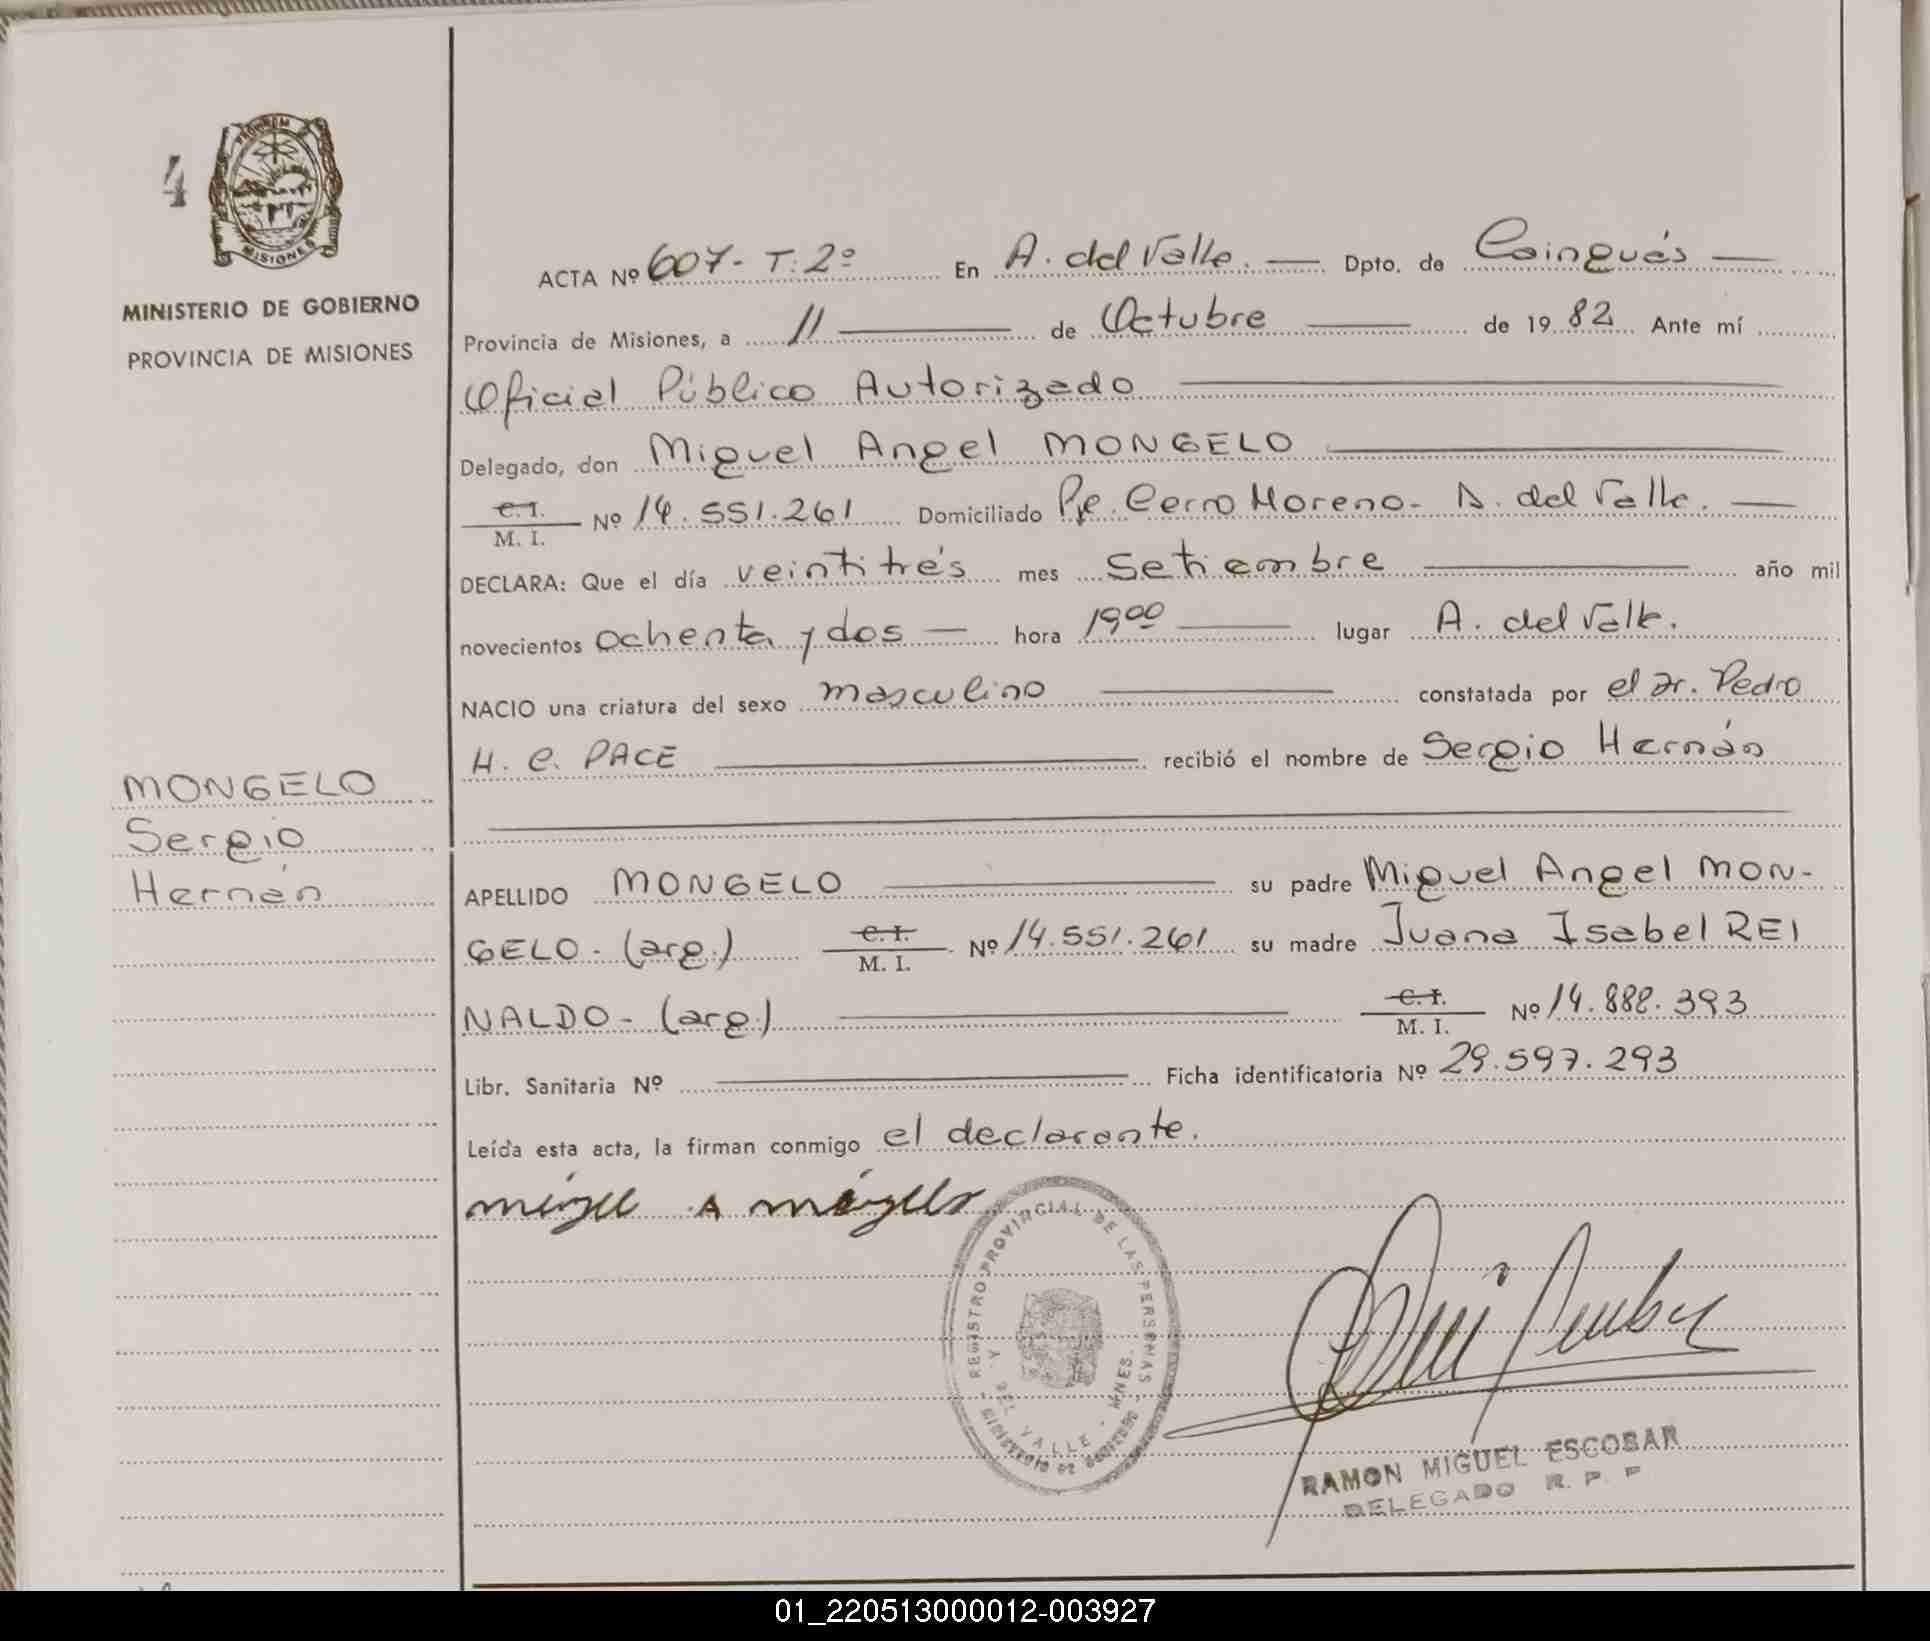 4
PROVINCIA
MISIONES
MINISTERIO DE GOBIERNO
PROVINCIA DE MISIONES
MONGELO
Sergio
Hernán
ACTA Nº 607- T: 2º En A. del Valle. Dpto. de Cainguás
Provincia de Misiones, a 11 de Octubre de 19 82 Ante mí
Oficial Público Autorizado
Delegado, don Miguel Angel MONGELO
C.I.
M. I. Nº 14.551.261 Domiciliado Pje. Cerro Moreno- A. del Valle.
DECLARA: Que el día veintitrés mes Setiembre año mil
novecientos ochenta y dos hora 19⁰⁰ lugar A. del Valle.
NACIO una criatura del sexo masculino constatada por el Dr. Pedro
H. C. PACE recibió el nombre de Sergio Hernán
APELLIDO MONGELO su padre Miguel Angel MON-
GELO - (arg.) C.I. M. I. Nº 14.551.261 su madre Juana Isabel REI
NALDO - (arg.) C.I. M. I. Nº 14.888.393
Libr. Sanitaria Nº Ficha identificatoria Nº 29.597.293
Leída esta acta, la firman conmigo el declarante.
REGISTRO PROVINCIAL DE LAS PERSONAS
DEL VALLE - MNES.
MINISTERIO DE GOBIERNO
RAMON MIGUEL ESCOBAR
DELEGADO R. P. P
01_220513000012-003927